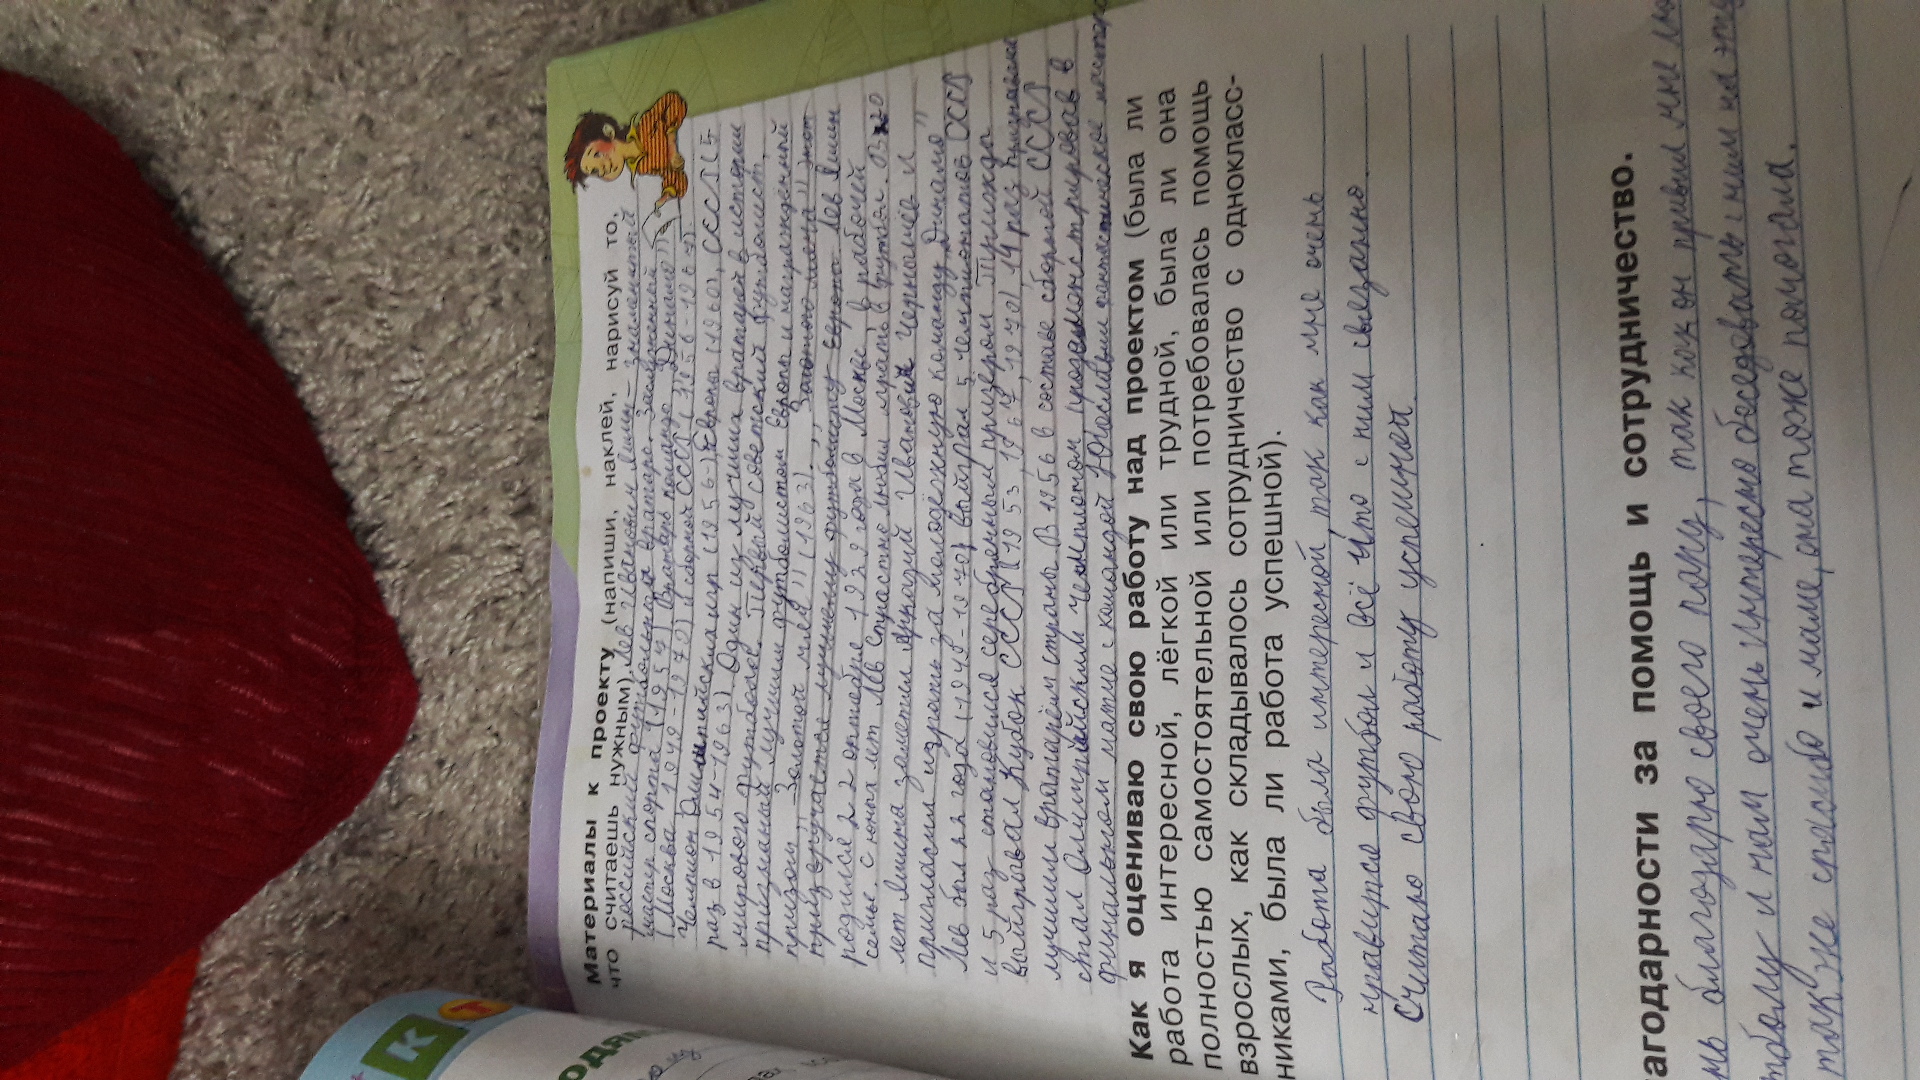 К
Т
ОДА
Материалы к проекту (напиши, наклей, нарисуй то,
что считаешь нужным). Лев Иванович Яшин – знаменитый
российский футбольный вратарь. Заслуженный
мастер спорта (1957). Вратарь команды „Динамо"
(Москва, 1949-1970) и сборной СССР (1956-1967)
Чемпион Олимпийских игр (1956), Европы (1960), СССР (5
раз в 1954-1963). Один из лучших вратарей в истории
мирового футбола. Первый советский футболист,
признаный лучшим футболистом Европы и награжденный
призом „Золотой мяч" (1963). „Золотого мяча" этот
приз вручается лучшему футболисту Европы. Лев Яшин
родился 22 октября 1929 года в Москве, в рабочей
семье. С юных лет Лев страстно любил играть в футбол. В 20
лет Яшина заметил Аркадий Иванович Чернышёв и
пригласил играть за молодёжную команду „Динамо"
Лев был 22 года (1949-1970) выйграл 5 чемпионатов СССР
и 5 раз становился серебрянным призёром. Трижды
выйгрывал Кубок СССР (1953, 1967, 1970), 14 раз признавался
лучшим вратарём страны. В 1956 в составе сборной СССР
стал Олимпийским чемпионом, продемонстрировав в
финальном матче с командой Югославии фантастическое мастерс
Как я оцениваю свою работу над проектом (была ли
работа интересной, лёгкой или трудной, была ли она
полностью самостоятельной или потребовалась помощь
взрослых, как складывалось сотрудничество с однокласс-
никами, была ли работа успешной).
Работа была интересной, так как мне очень
нравится футбол и всё что с ним связанно.
Считаю свою работу успешной.
лагодарности за помощь и сотрудничество.
нь благодарю своего папу, так как он привил мне лю
тболу и нам очень интересно беседовать с ним на эту
также спасибо и маме, она тоже помогала.